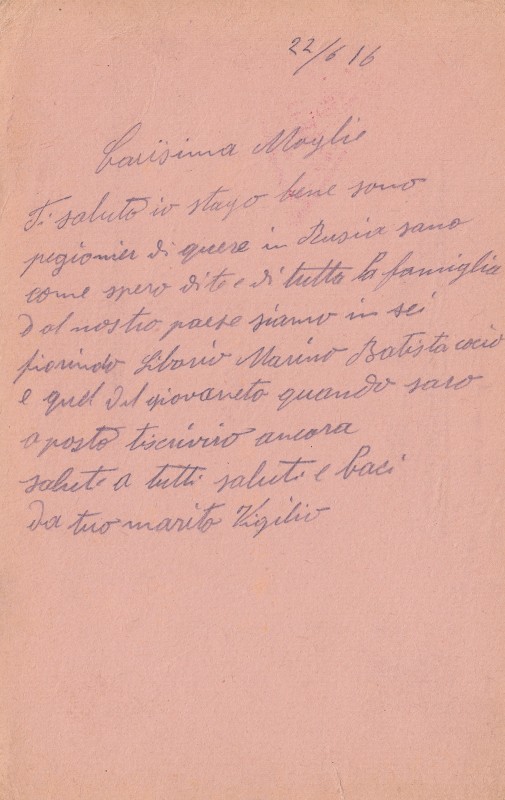 22/6 16
Carisima Moglie
Ti saluto io stago bene sono
pregionier di guere in Rusia sano
come spero di te e di tutta la famiglia
Dal nostro paese siamo in sei
fiorindo Liborio Marino Batista cocio
e quel del giovaneto quando saro
a posto tiscriviro ancora
salute a tutti saluti e baci
da tuo marito Vigilio